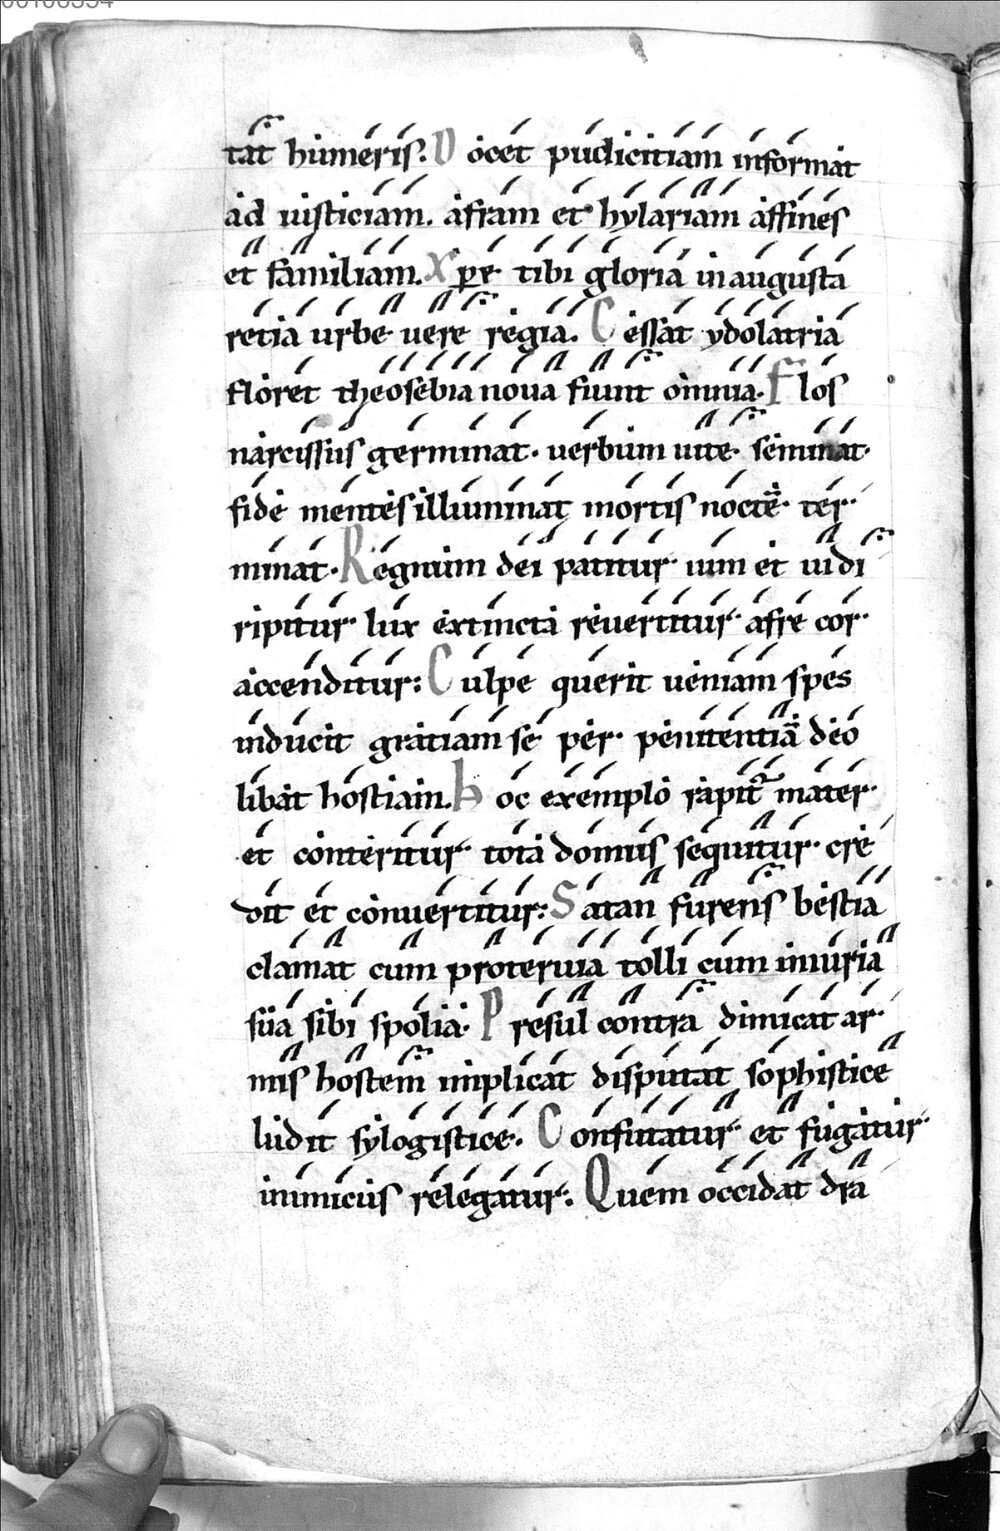 00100354
tat humeris. Docet pudicitiam informat
ad iusticiam. afram et hylariam affines
et familiam. Xpe tibi gloria in augusta
retia urbe vere regia. Cessat ydolatria
floret theosebia nova fiunt omnia. Flos
narcissus germinat. verbum vite. seminat.
fide mentes illuminat mortis noctē. ter-
minat. Regnum dei patitur vim et vi di
ripitur lux extincta revertitur afre cor
accenditur: Culpe querit veniam spes
inducit gratiam se per penitentiā deo
libat hostiam. Hoc exemplo rapit᷑ mater
et conteritur tota domus sequitur cre
dit et convertitur: Satan furens bestia
clamat cum protervia tolli cum iniuria
sua sibi spolia. Presul contra dimicat ar-
mis hostem implicat disputat sophistice
ludit sylogistice. Confutatur et fugatur
inimicus relegatur: Quem occidat dra